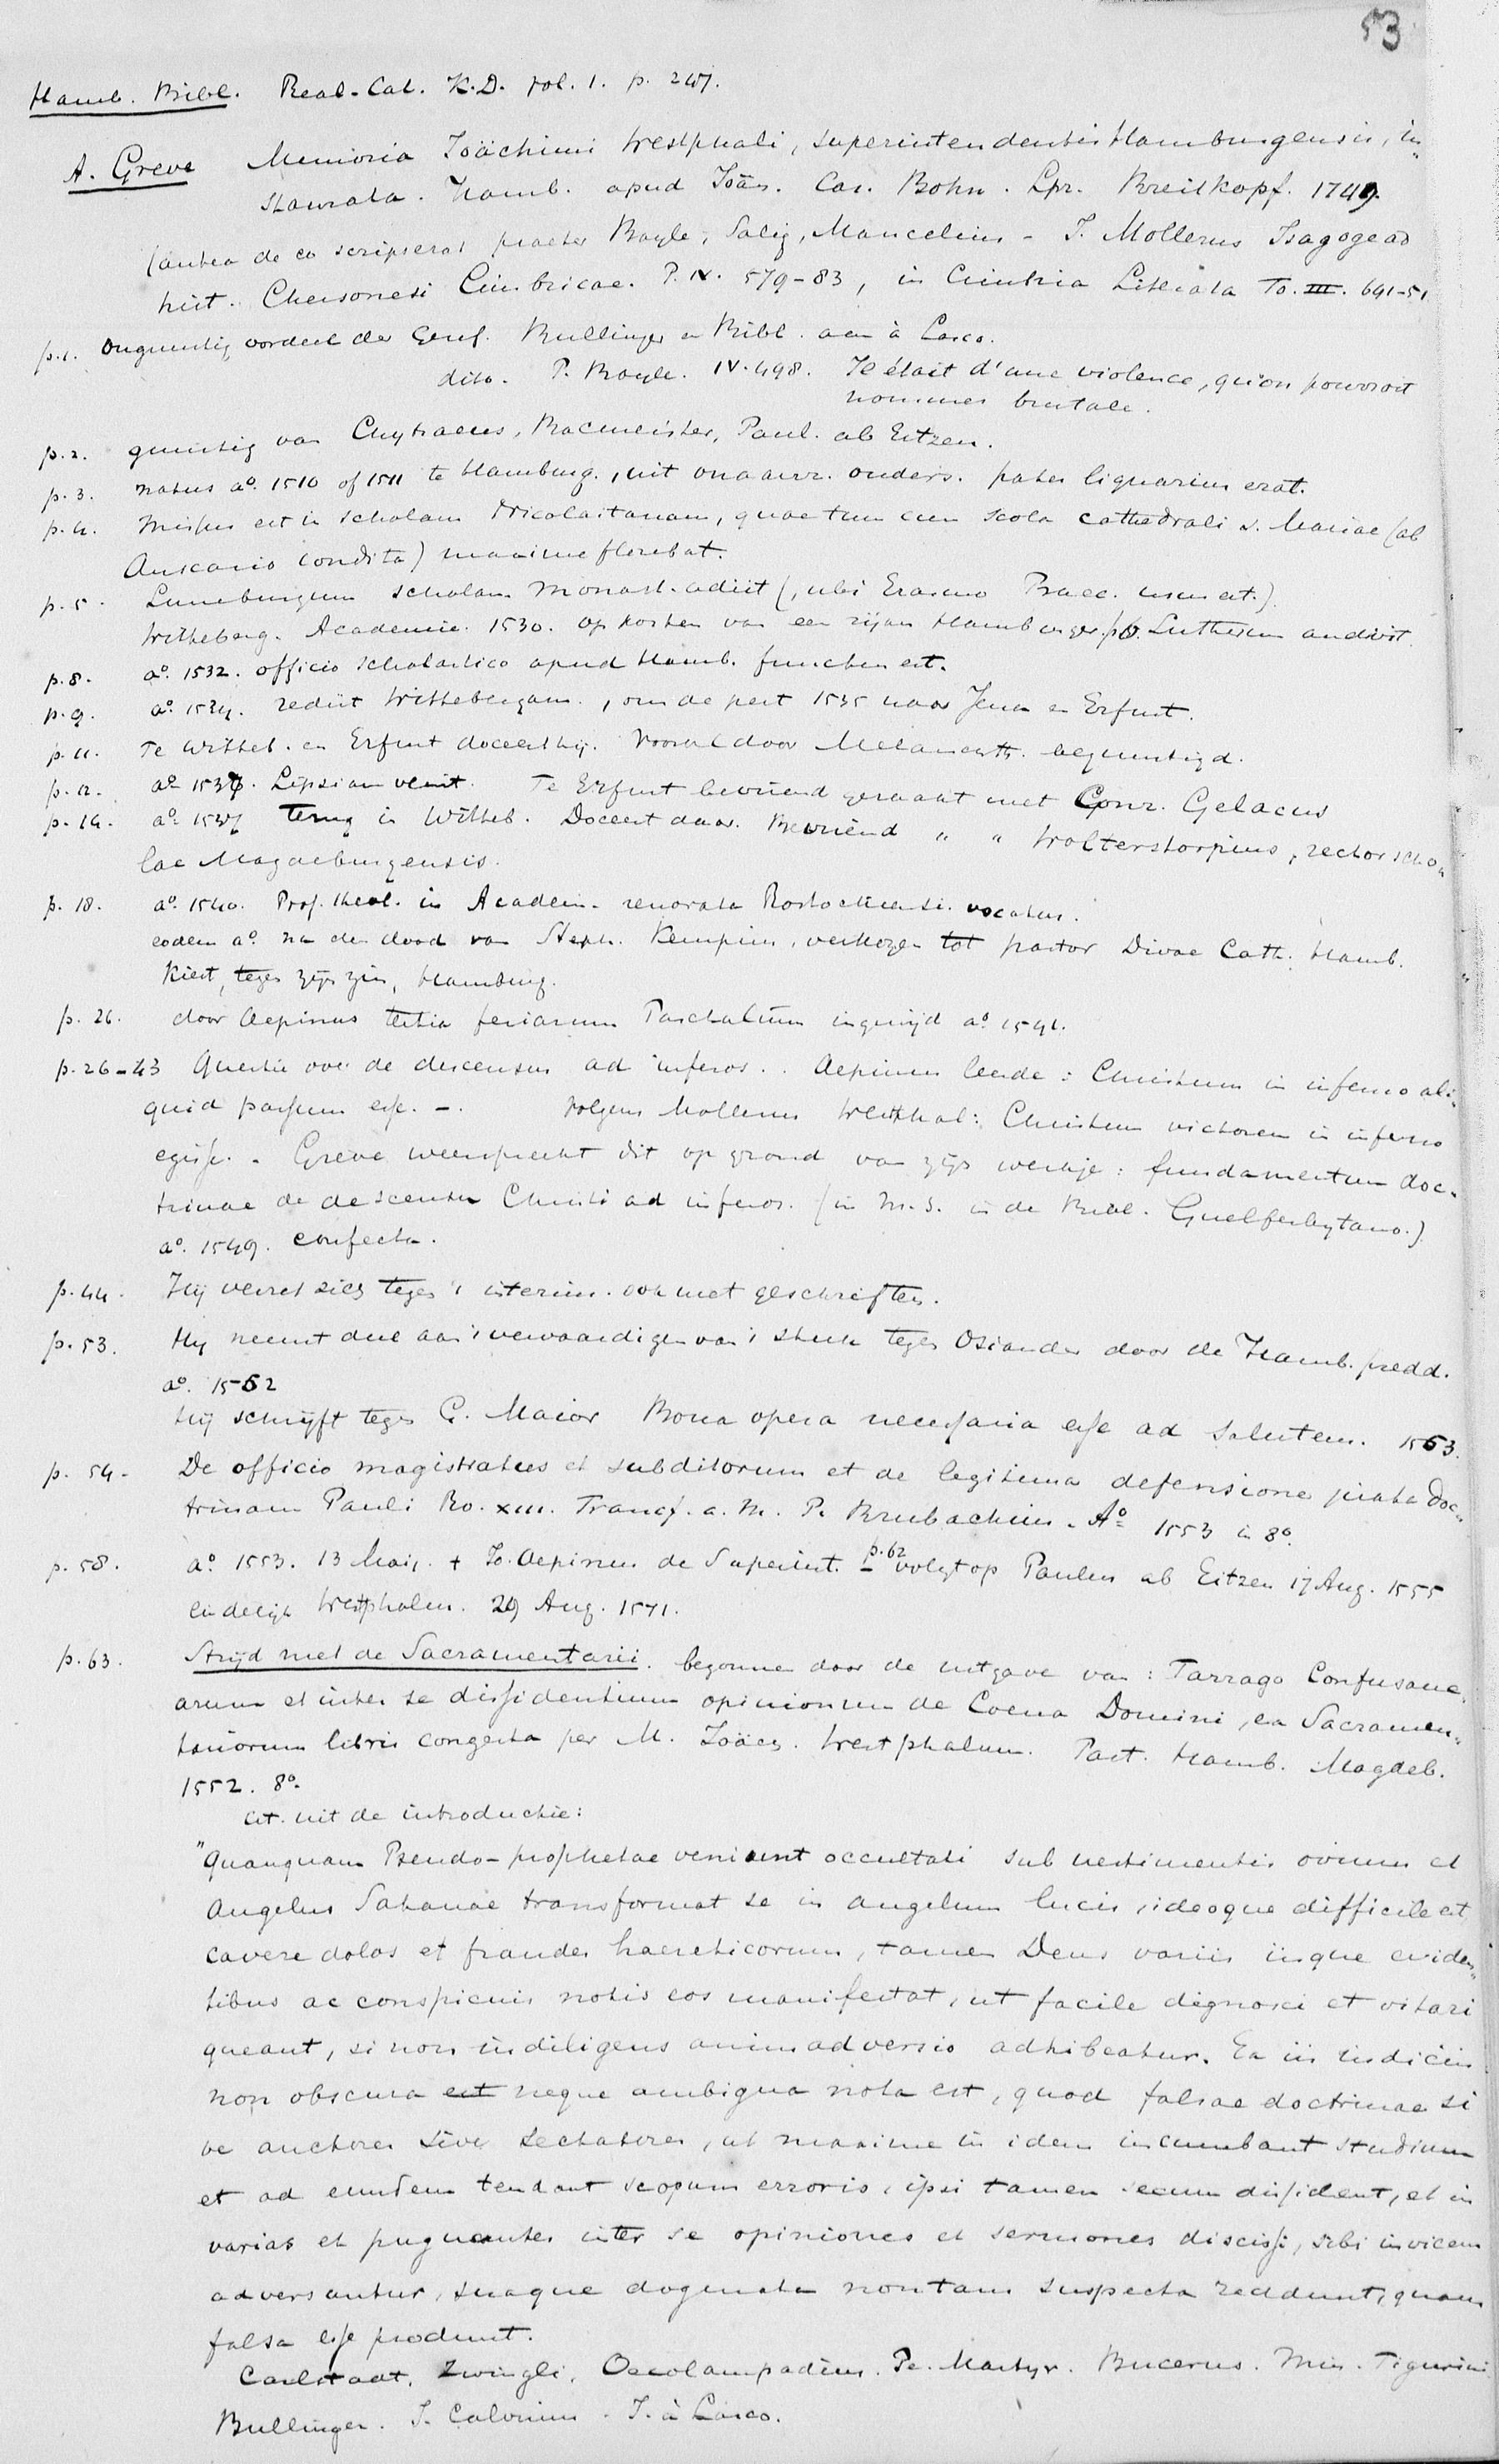 53
Hamb. Bibl. Real-Cat. K.D. vol. 1. p. 247.
A. Greve Memoria Joächimi Westphali, superintendentis Hamburgensis, in„
staurata. Hamb. apud Joän. Car. Bohn. Lpz. Breitkopf. 1749.
(antea de eo scripserat praeter Bayle, Salig, Mancelius - J. Mollerus Isagoge ad
hist. Chersonesi Cimbricae. P. IV. 579-83, in Cimbria Literata To. III. 641-51
p.1. Ongunstig oordeel der Geref. Bullinger en Bibl. aan à Lasco.
dito. P. Bayle. IV. 498. Il était d'une violence, qu'on pouvoit
nommer brutale.
p.2. gunstig van Chytraeus, Bacmeister, Paul. ab Eitzen.
p.3. natus aº. 1510 of 1511 te Hamburg, uit onaanz. ouders. pater lignarius erat.
p.4. missus est in scholam Nicolaitanam, quae tum cum scola cathedrali s. Mariae (ab
Anscario condita) maxime florebat.
p.5. Luneburgum scholam monast. adiit (, ubi Erasmo Praec. usus est.)
Witheberg. Academie. 1530. op kosten van een rijken Hamburger. p6. Lutherum audivit.
p.8. aº. 1532. officio scholastico apud Hamb. functus est.
p.9. aº. 1534. rediit Wittebergam., om de pest 1535 naar Jena en Erfurt.
p.11. Te Witteb. en Erfurt doceert hij. Vooral door Melancth. begunstigd.
p.12. aº 1536. Lipsiam venit. Te Erfurt bevriend geraakt met Conr. Gelacus
p.14. aº 1537 Terug in Witteb. Doceert daar. Bevriend „ „ Wolterstorpius, rector scho„
lae Magdeburgensis.
p.18. aº. 1540. Prof. theol. in Academ. renovata Rostochiensi vocatus.
eodem aº. na den dood van Steph. Kempius, verkozen tot pastor Divae Cath. Hamb.
Kiest, tegen zijn zin, Hamburg.
p.26. door Aepinus tertia feriarum Paschalium ingewijd aº. 1541.
p.26-43 Questie over de descensus ad inferos.. Aepinus leerde: Christum in inferno ali„
quid passum esse. -. Volgens Mollerus Westphal: Christum victorem in inferno
egisse. - Greve weerspreekt dit op grond van zijn werkje: fundamentum doc„
trinae de descensu Christi ad inferos. (in M.S. in de Bibl. Guelferbytano.)
aº. 1549. confecta.
p.44. Hij verzet zich tegen 't interim. ook met geschriften.
p.53. Hij neemt deel aan 't vervaardigen van 't stuk tegen Osiander door de Hamb. predd.
aº. 1552
Hij schrijft tegen G. Maior Bona opera necessaria esse ad salutem. 1553.
p.54. De officio magistratus et subditorum et de legitima defensione juxta doc„
trinam Pauli Ro. XIII. Francf. a. M. P. Brubachium. Aº 1553 in 8º.
p.58. aº. 1553. 13 Maij. + Jo. Aepinus de Superint. - p.62 volgt op Paulus ab Eitzen 17 Aug. 1555
eindelijk Westphalus. 29 Aug. 1571.
p.63. Strijd met de Sacramentarii. begonnen door de uitgave van: Farrago Confusane„
arum et inter se dissidentium opinionum de Coena Domini, ex Sacramen„
tariorum libris congesta per M. Joäch. Westphalum. Past. Hamb. Magdeb.
1552. 8º.
cit. uit de introductie:
"Quanquam Pseudo-prophetae veniunt occultati sub vestimentis ovium et
Angelus Satanae transformat se in angelum lucis, ideoque difficile est
cavere dolos et fraudes haereticorum, tamen Deus variis iisque eviden„
tibus ac conspicuis notis eos manifestat, ut facile dignosci et vitari
queant, si non indiligens animadversio adhibeatur. Ex iis indiciis
non obscura est neque ambigua nota est, quod falsae doctrinae si
ve auctores sive sectatores, ut maxime in idem incumbant studium
et ad eundem tendant scopum erroris, ipsi tamen secum dissident, et in
varias et pugnantes inter se opiniones et sermones discissi, sibi invicem
adversantur, suaque dogmata non tam suspecta reddunt, quam
falsa esse produnt.
Carlstadt, Zwingli, Oecolampadius. Pe. Martyr. Bucerus. Min. Tigurini
Bullinger. J. Calvinus. J. à Lasco.